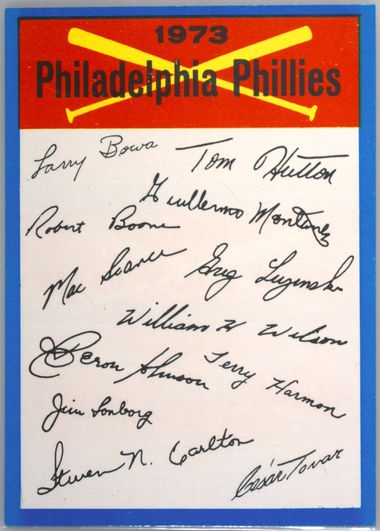 1973
Philadelphia Phillies
Larry Bowa
Tom Hutton
Guillermo Montanez
Robert Boone
Mac Scarce
Greg Luzinski
William H Wilson
Terry Harmon
Deron Johnson
Jim Lonborg
Steven N. Carlton
César Tovar